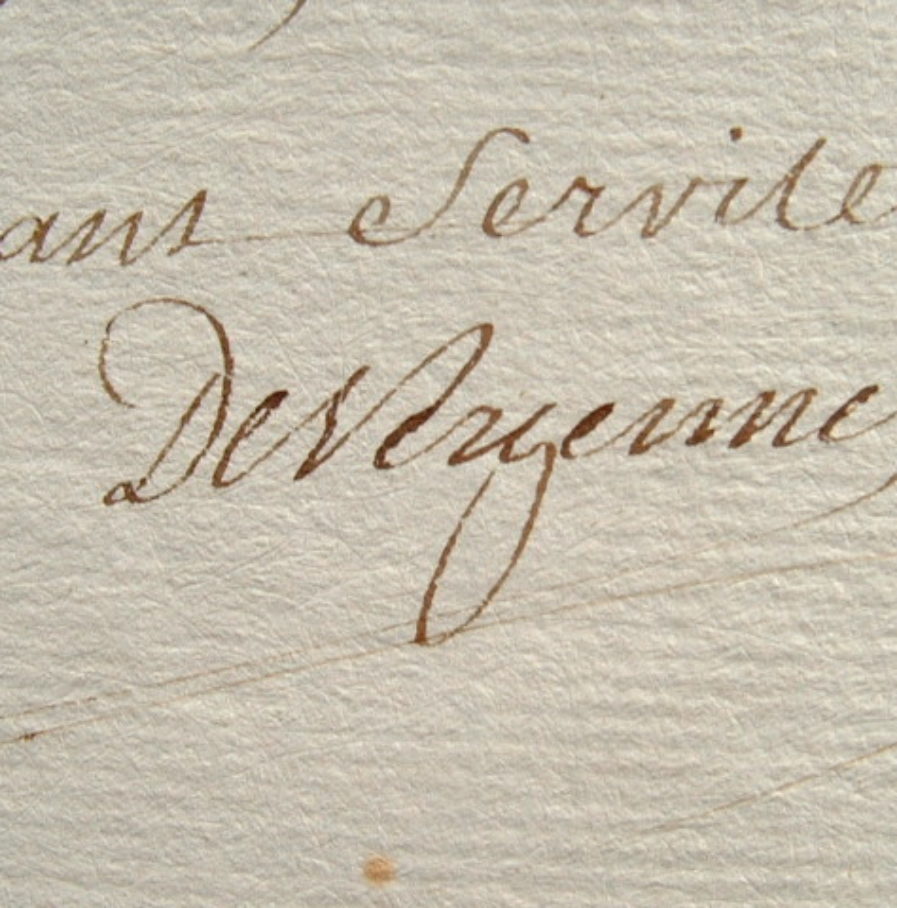 ant Servite
DeVergenne